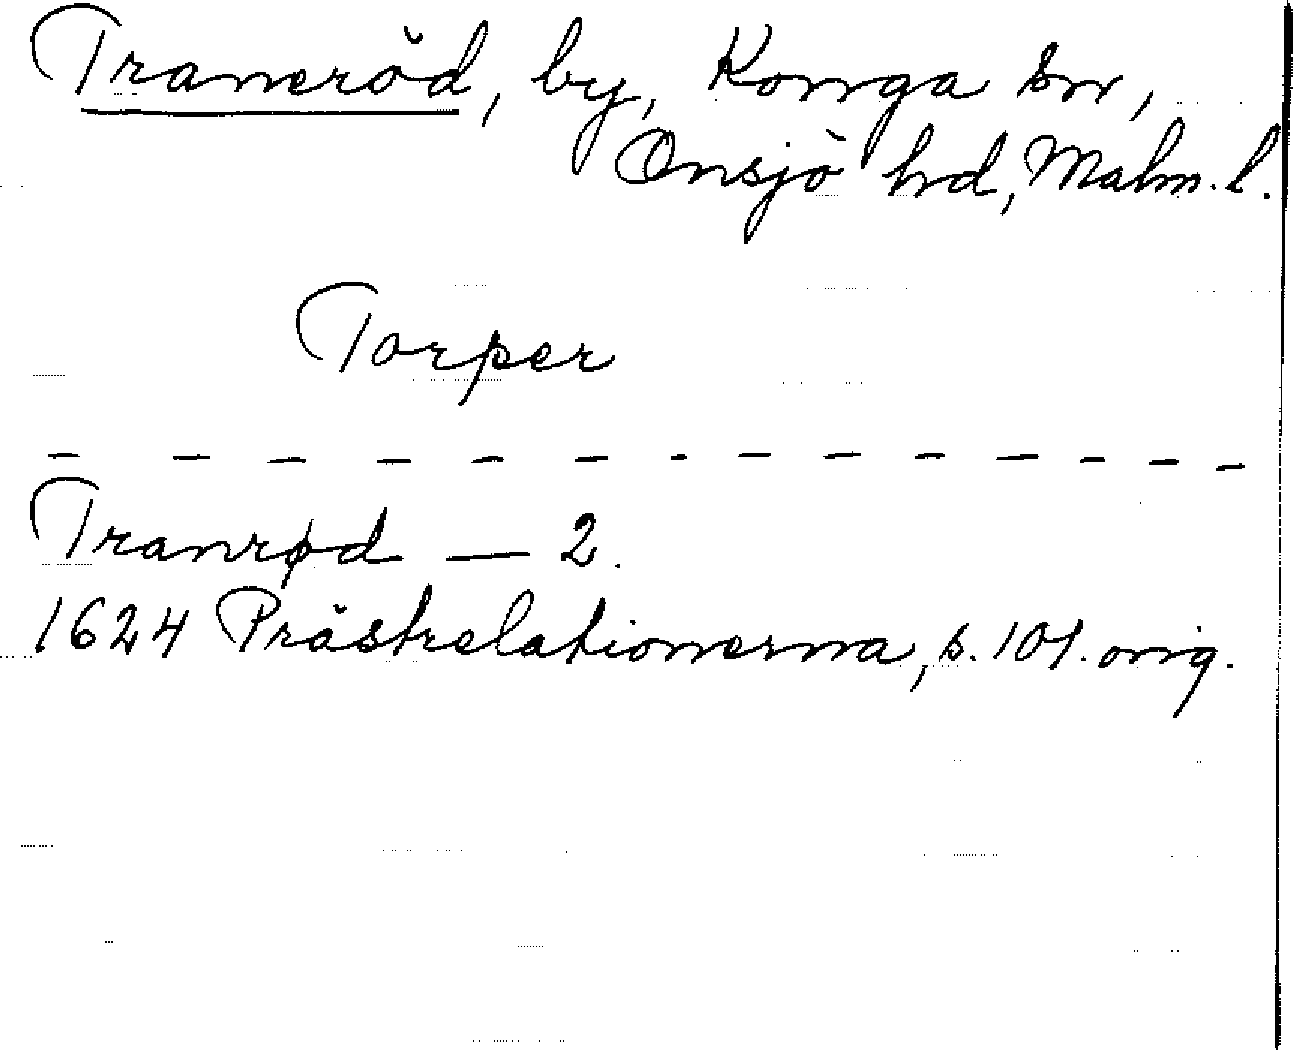 Traneröd, by, Konga sn,
Onsjö hrd, Malm. l.
Torper
- - - - - - - - - - - - - -
Tranrød — 2.
1624 Prästrelationerna, s. 101. orig.